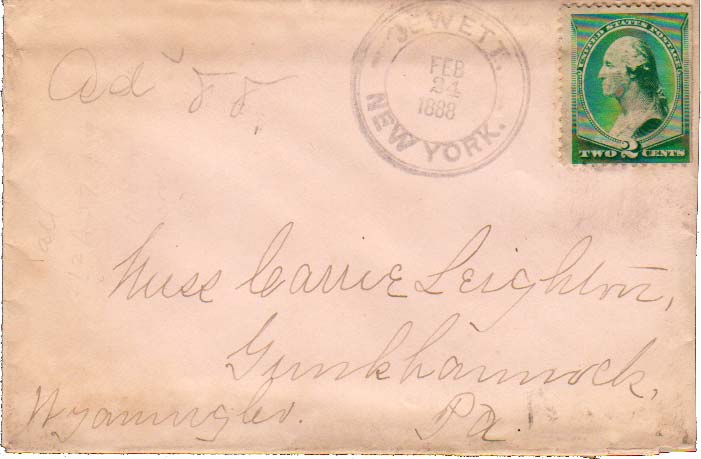 JEWETT.
FEB
24
1888
NEW YORK.
UNITED STATES POSTAGE
TWO 2 CENTS
Ad'
Miss Carrie Leighton,
Tunkhannock,
Wyoming Co. Pa.